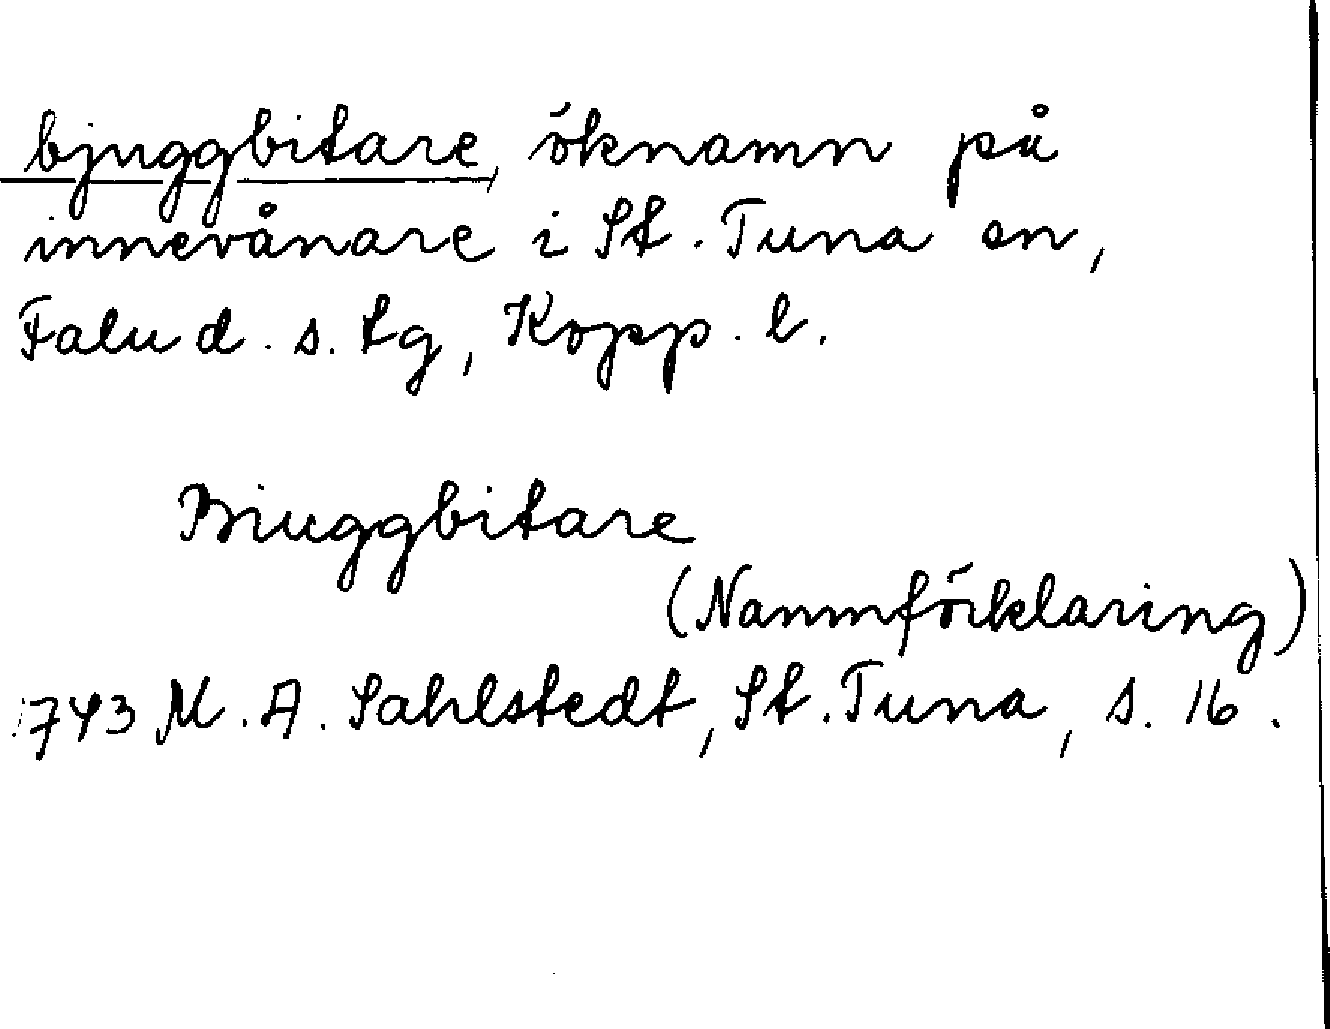 bjuggbitare, öknamn på
innevånare i St. Tuna sn,
Falu d. s. tg, Kopp. l.
Biuggbitare
(Namnförklaring)
1743 M. A. Sahlstedt, St. Tuna, s. 16.